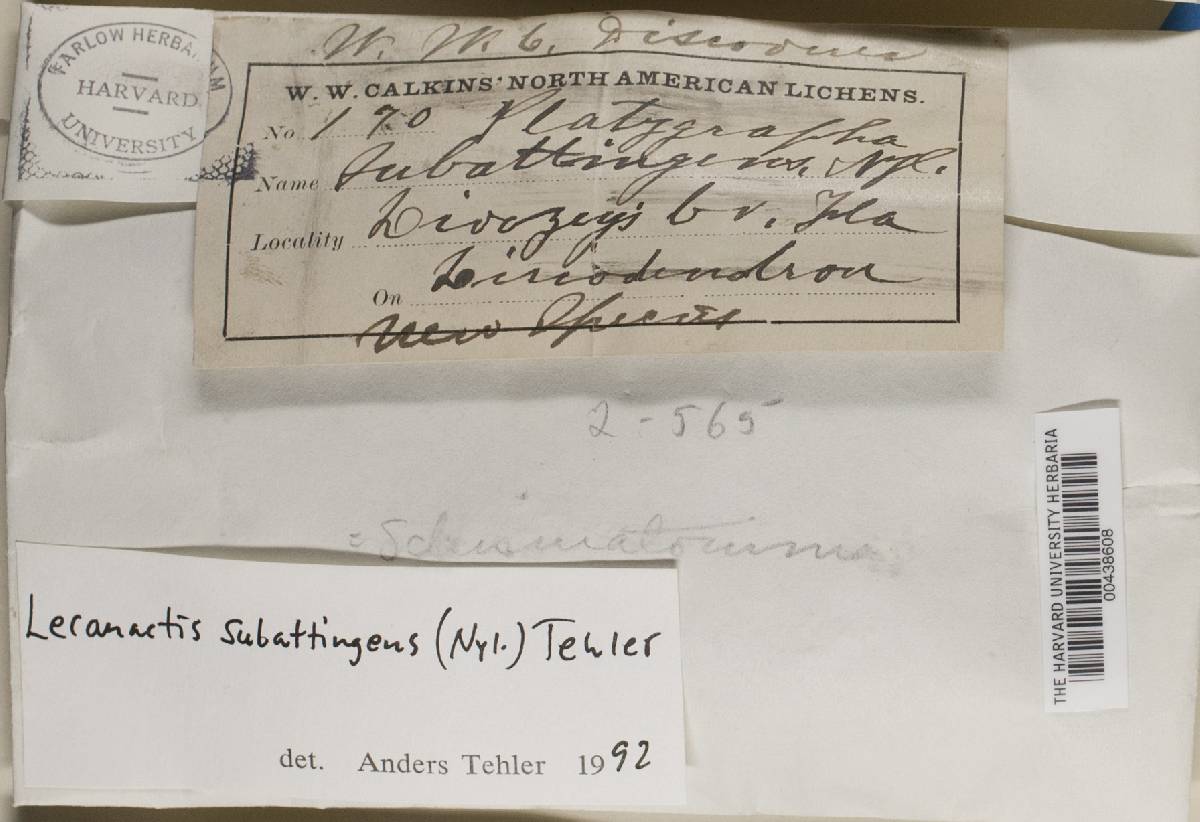 FARLOW HERBARIUM
HARVARD
UNIVERSITY
W. W. C. Discoverer
W. W. CALKINS' NORTH AMERICAN LICHENS.
No. 190 Platygrapha
Name subattingens, Nyl.
Locality Cr, Fla
On Liriodendron
New Species
2-565
= Schismatomma
Lecanactis subattingens (Nyl.) Tehler
det. Anders Tehler 1992
THE HARVARD UNIVERSITY HERBARIA
00438608